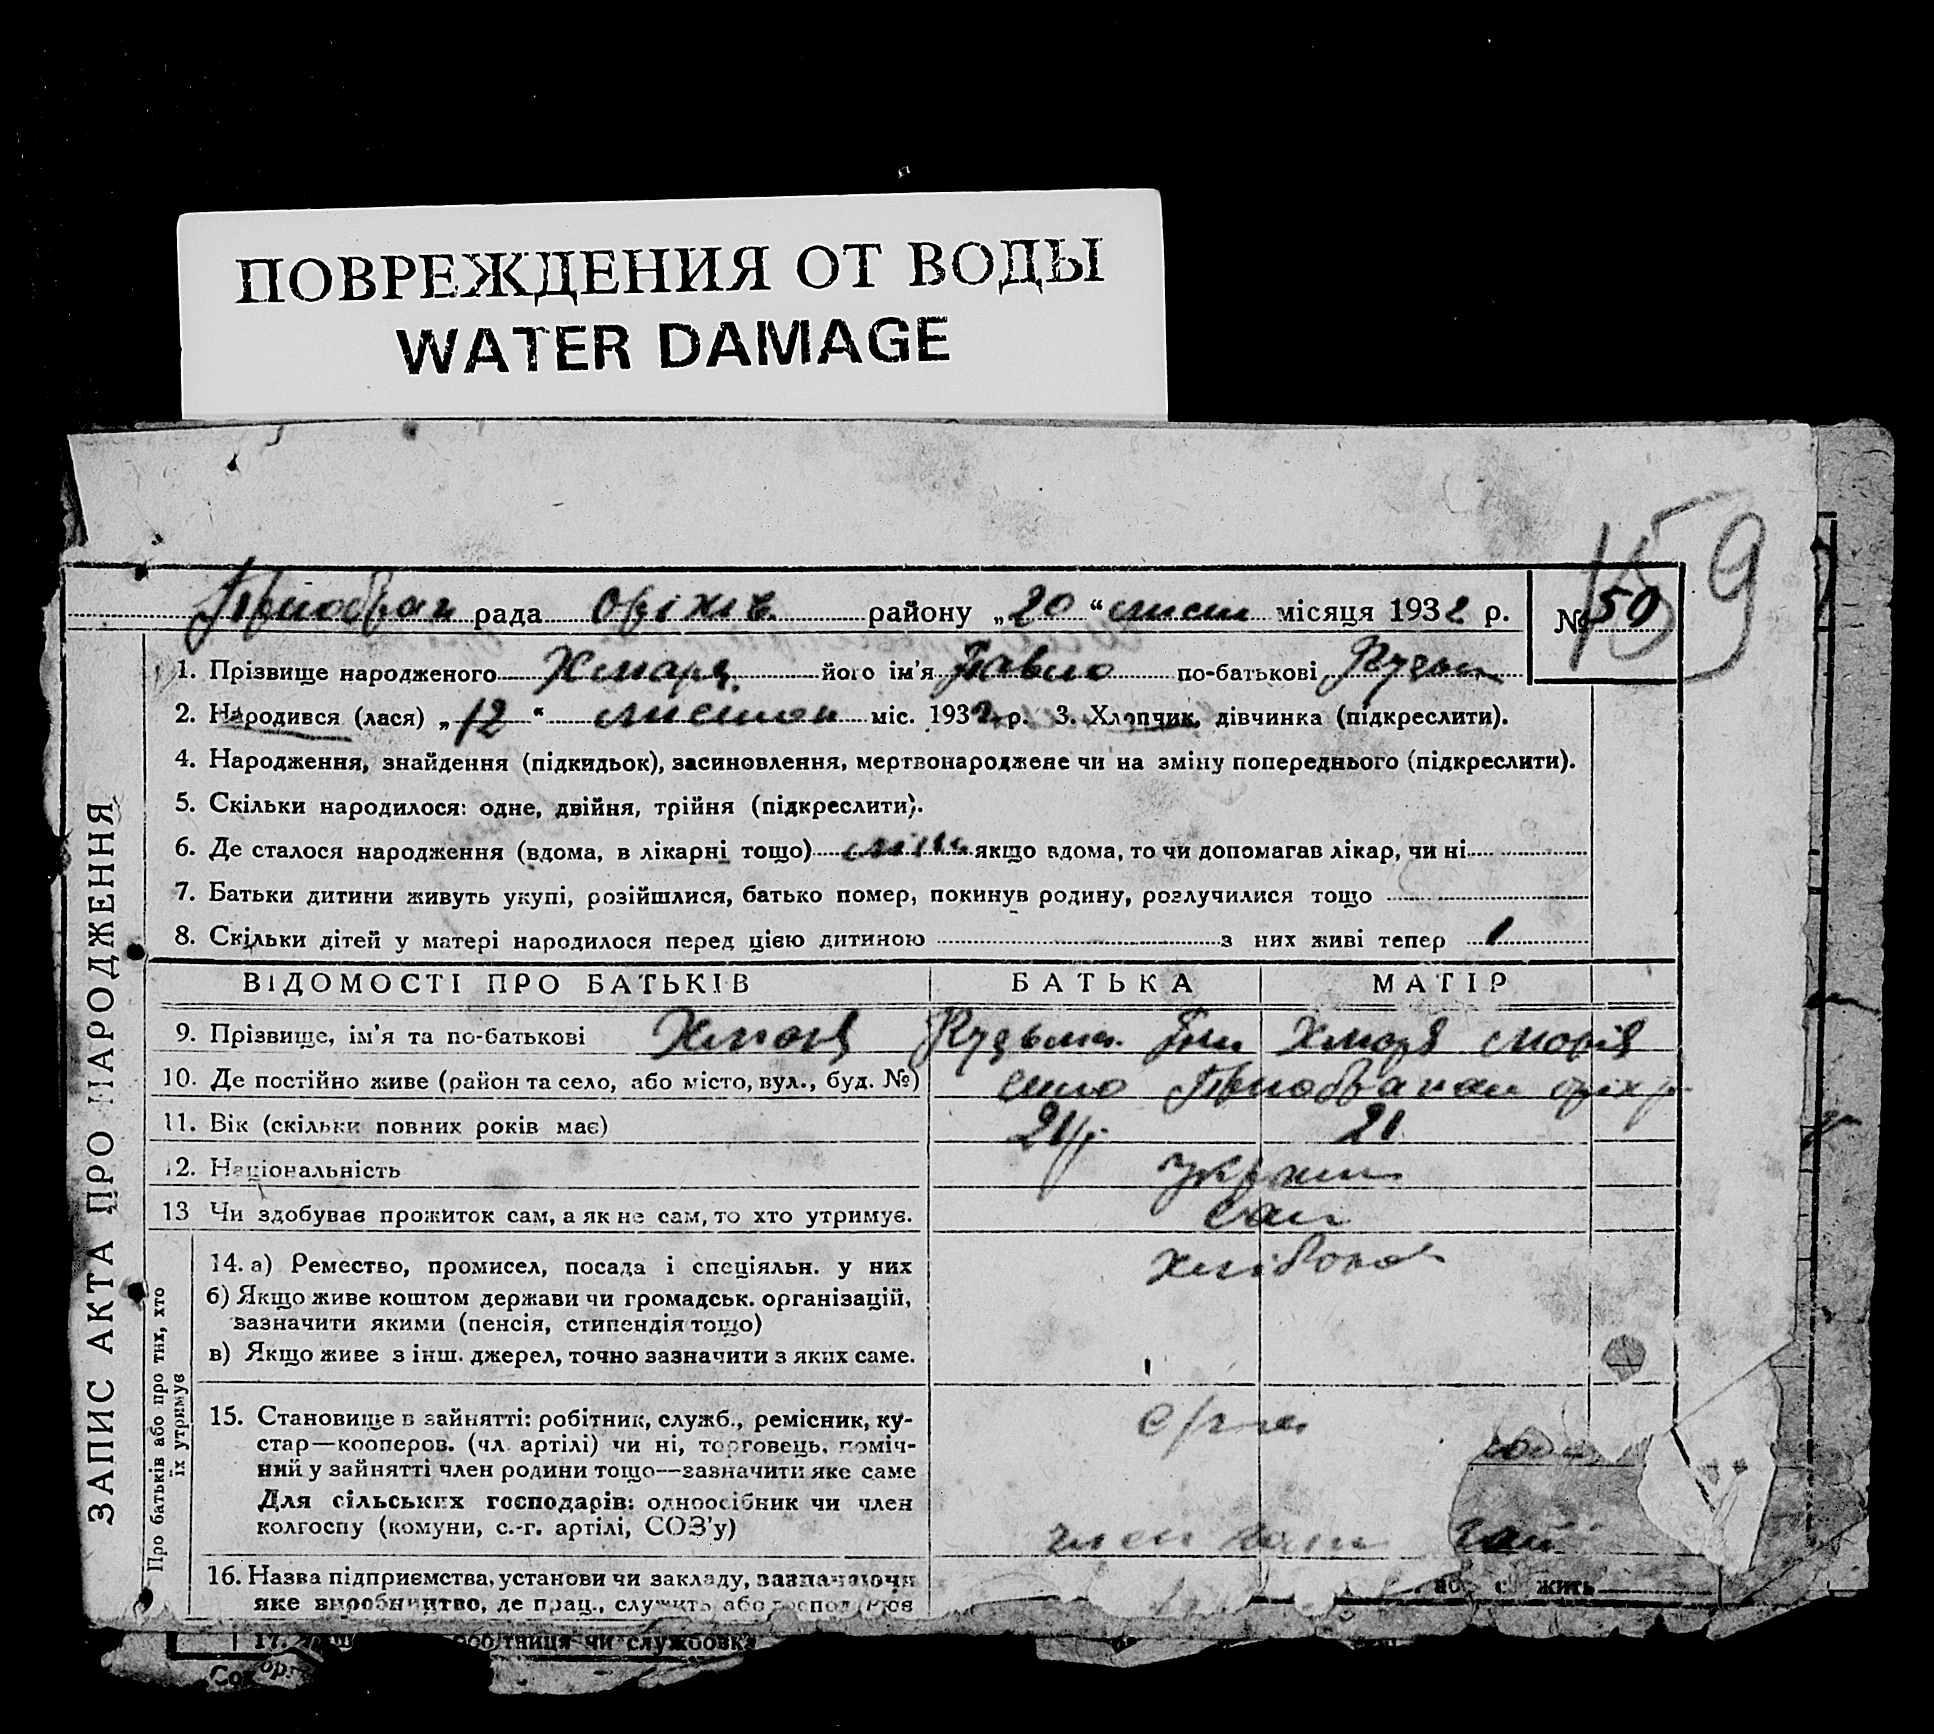 ПОВРЕЖДЕНИЯ ОТ ВОДЫ
WATER DAMAGE
159
рада Оріхів. району „20“ лист місяця 1932 р. № 50
1. Прізвище народженого Хмаря. його ім'я Павло по-батькові Кузьм
2. Народився (лася) „12“ листоп міс. 1932 р. 3. Хлопчик, дівчинка (підкреслити).
4. Народження, знайдення (підкидьок), засиновлення, мертвонароджене чи на зміну попереднього (підкреслити).
5. Скільки народилося: одне, двійня, трійня (підкреслити).
6. Де сталося народження (вдома, в лікарні тощо) якщо вдома, то чи допомагав лікар, чи ні
7. Батьки дитини живуть укупі, розійшлися, батько помер, покинув родину, розлучилися тощо
8. Скільки дітей у матері народилося перед цією дитиною з них живі тепер 1
ВІДОМОСТІ ПРО БАТЬКІВ БАТЬКА МАТІР
9. Прізвище, ім'я та по-батькові Хмаря Кузьма Хмаря Марія
10. Де постійно живе (район та село, або місто, вул., буд. №) село оріх р
11. Вік (скільки повних років має) 21
12. Національність україн
13 Чи здобуває прожиток сам, а як не сам, то хто утримує. сам
14. а) Ремество, промисел, посада і спеціяльн. у них хлібороб
б) Якщо живе коштом держави чи громадськ. організацій,
зазначити якими (пенсія, стипендія тощо)
в) Якщо живе з інш. джерел, точно зазначити з яких саме.
15. Становище в зайнятті: робітник, служб., ремісник, ку-
стар—кооперов. (чл. артілі) чи ні, торговець, поміч-
ний у зайнятті член родини тощо—зазначити яке саме
Для сільських господарів: одноосібник чи член
колгоспу (комуни, с.-г. артілі, СОЗ'у) член
16. Назва підприємства, установи чи закладу, зазначаючи
яке виробництво, де прац., служить або господарює
жить
17. робітниця чи службовка
ЗАПИС АКТА ПРО НАРОДЖЕННЯ
Про батьків або про тих, хто
їх утримує